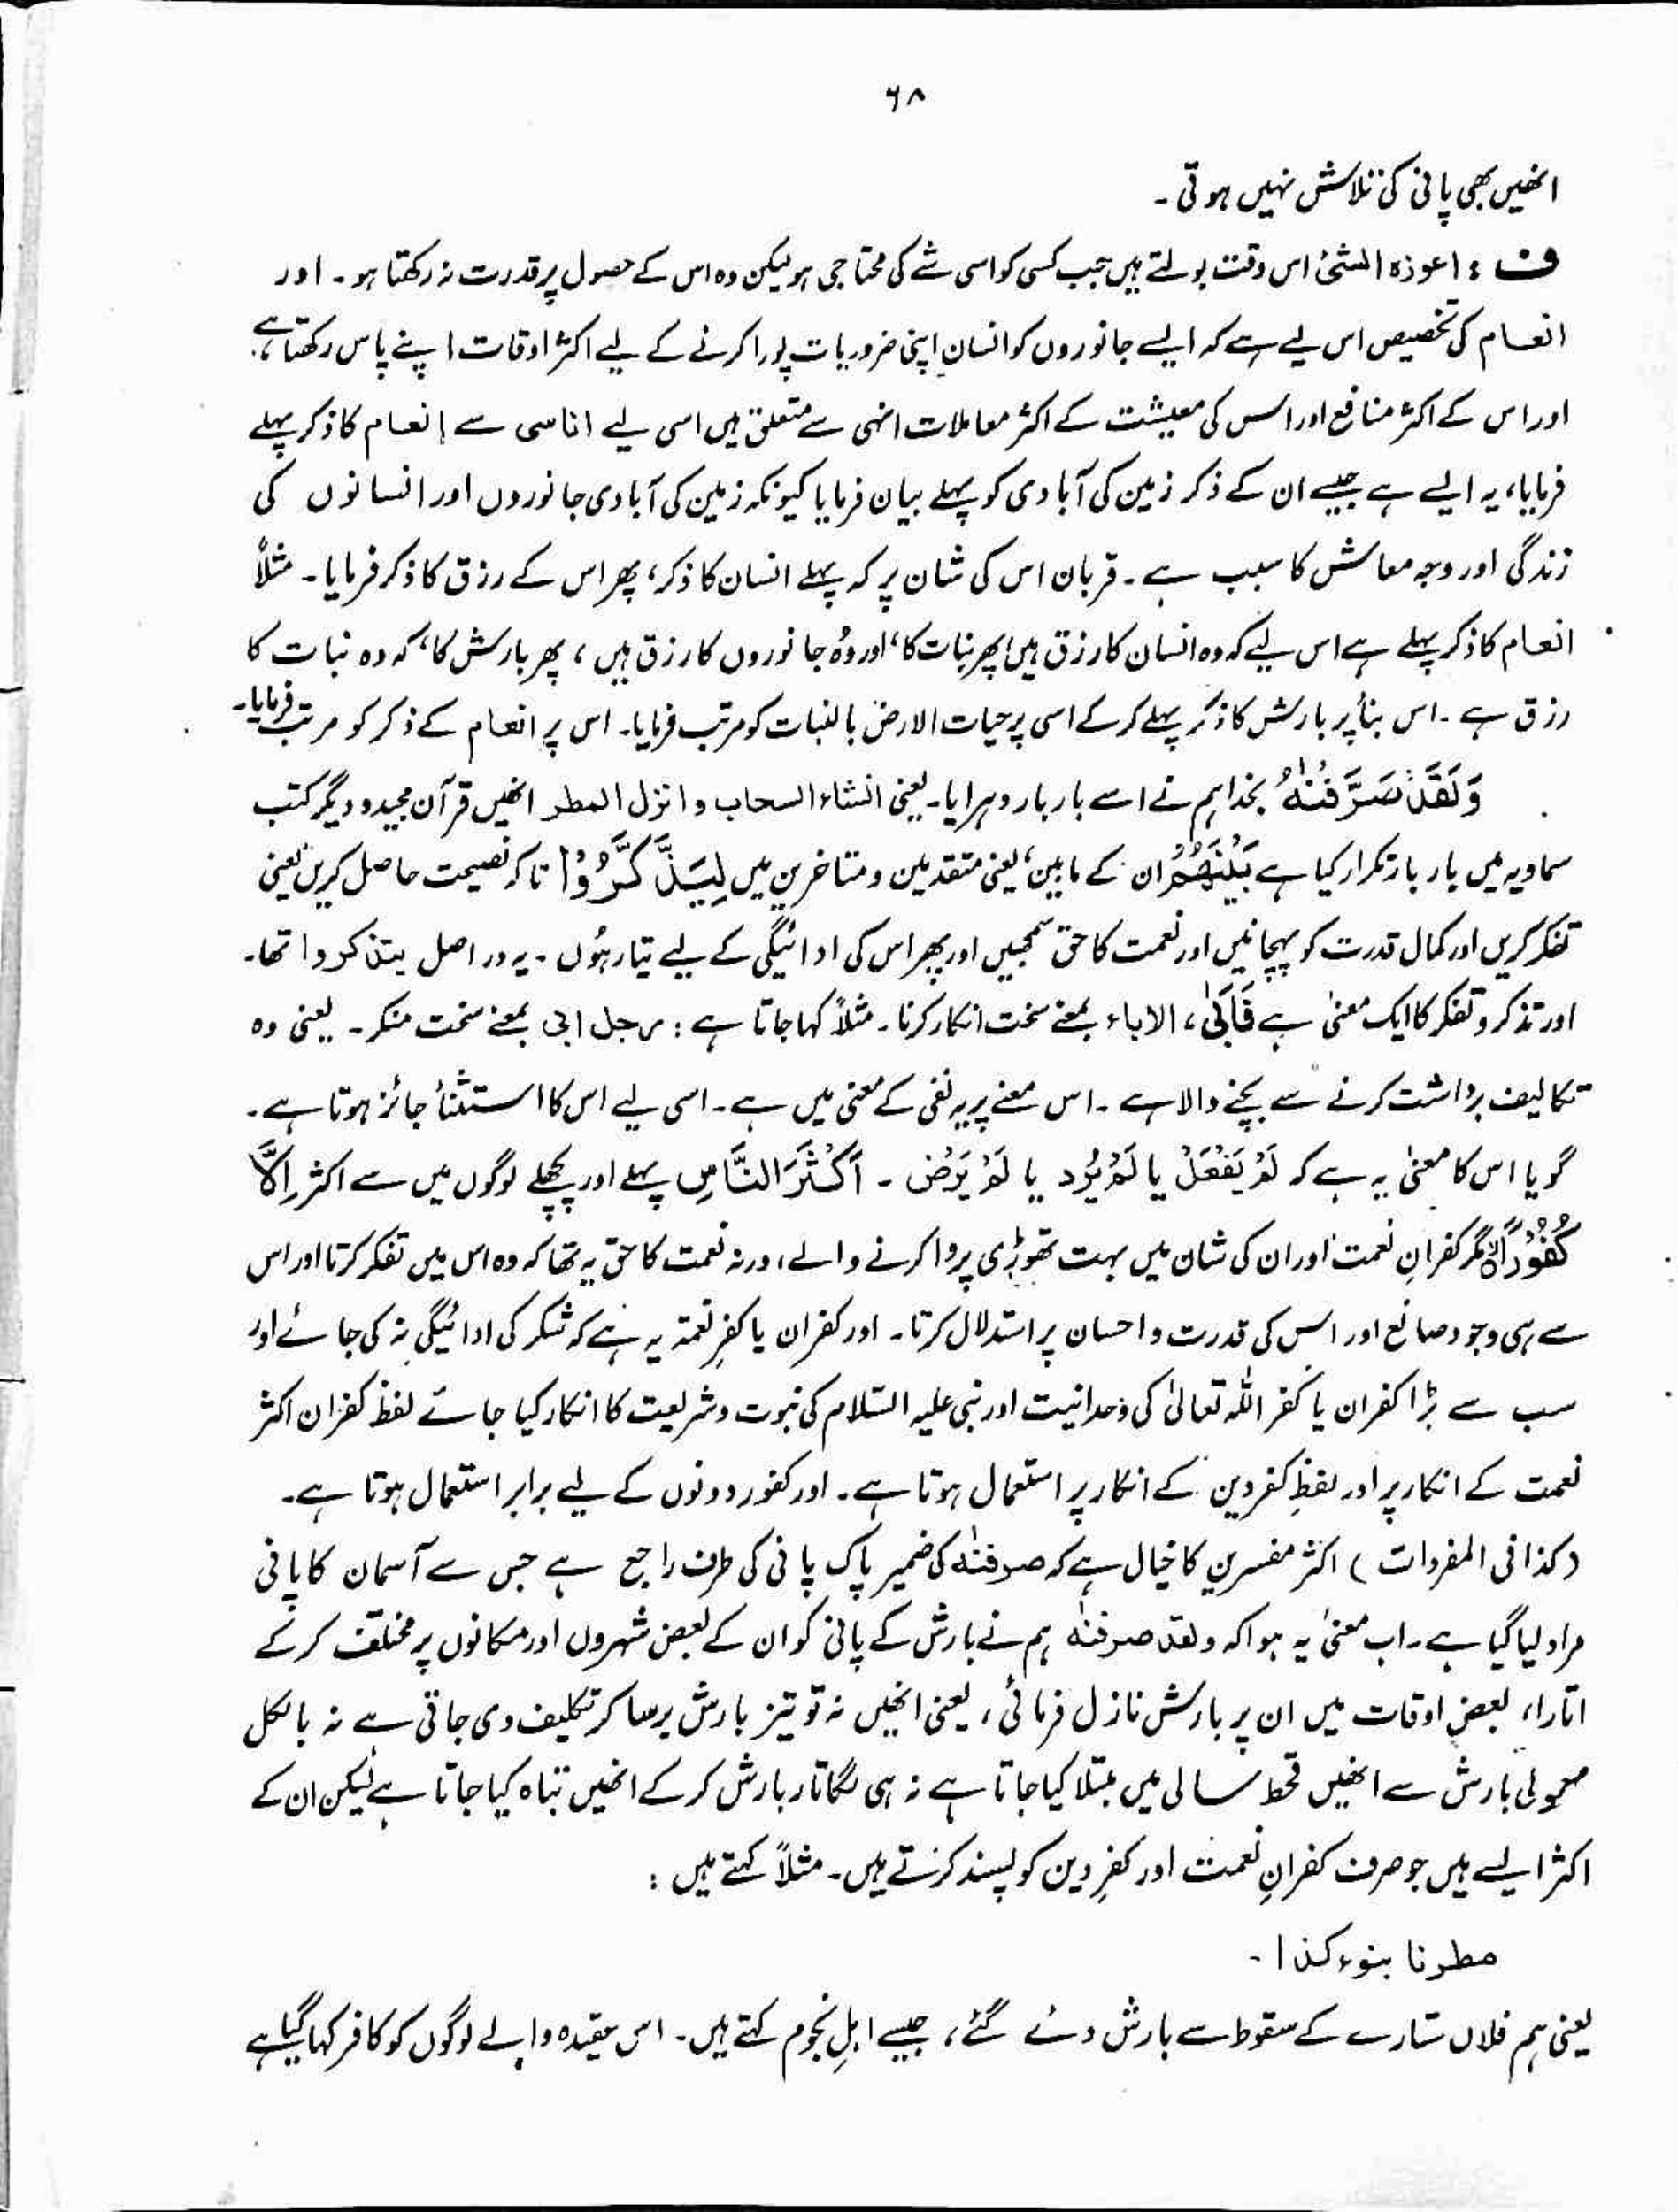 ۶۸
انھیں بھی پانی کی تلاش نہیں ہوتی۔
ف : اعوذہ الشیٔ اس وقت بولتے ہیں جب کسی کو اسی شے کی محتاجی ہو لیکن وہ اس کے حصول پر قدرت نہ رکھتا ہو۔ اور
انعام کی تخصیص اس لیے ہے کہ ایسے جانوروں کو انسان اپنی ضروریات پورا کرنے کے لیے اکثر اوقات اپنے پاس رکھتا ہے،
اور اس کے اکثر منافع اور اس کی معیشت کے اکثر معاملات انہی سے متعلق ہیں اسی لیے اناسی سے انعام کا ذکر پہلے
فرمایا، یہ ایسے ہے جیسے ان کے ذکر زمین کی آبادی کو پہلے بیان فرمایا کیونکہ زمین کی آبادی جانوروں اور انسانوں کی
زندگی اور وجہ معاش کا سبب ہے۔ قربان اس کی شان پر کہ پہلے انسان کا ذکر، پھر اس کے رزق کا ذکر فرمایا۔ مثلاً
انعام کا ذکر پہلے ہے اس لیے کہ وہ انسان کا رزق ہیں، پھر نبات کا، اور وُہ جانوروں کا رزق ہیں، پھر بارش کا، کہ وہ نبات کا
رزق ہے۔ اس بنأ پر بارش کا ذکر پہلے کرکے اسی پر حیات الارض بالنبات کو مرتب فرمایا۔ اس پر انعام کے ذکر کو مرتب فرمایا۔
وَلَقَدْ صَرَّفْنٰهُ بخدا ہم نے اسے بار بار دہرایا۔ یعنی انشاء السحاب و انزل المطر انھیں قرآن مجید و دیگر کتب
سماویہ میں بار بار تکرار کیا ہے بَيْنَهُمْ ان کے مابین، یعنی متقدمین و متاخرین میں لِيَذَّكَّرُوْا تاکہ نصیحت حاصل کریں یعنی
تفکر کریں اور کمال قدرت کو پہچانیں اور نعمت کا حق سمجھیں اور پھر اس کی ادائیگی کے لیے تیار ہُوں۔ یہ در اصل یتذکروا تھا۔
اور تذکر و تفکر کا ایک معنیٰ ہے فَاَبٰى، الاباء بمعنے سخت انکار کرنا۔ مثلاً کہا جاتا ہے : رجل ابی بمعنے سخت منکر۔ یعنی وہ
تکالیف برداشت کرنے سے بچنے والا ہے۔ اس معنے پر یہ نفی کے معنی میں ہے۔ اسی لیے اس کا استثنأ جائز ہوتا ہے۔
گویا اس کا معنیٰ یہ ہے کہ لَمْ يَفْعَلْ یا لَمْ يُرِد یا لَمْ يَرْض ۔ اَكْثَرُ النَّاسِ پہلے اور پچھلے لوگوں میں سے اکثر اِلَّا
كُفُوْرًا○ مگر کفرانِ نعمت اور ان کی شان میں بہت تھوڑی پروا کرنے والے، ورنہ نعمت کا حق یہ تھا کہ وہ اس میں تفکر کرتا اور اس
سے ہی وجود صانع اور اس کی قدرت و احسان پر استدلال کرتا۔ اور کفران یا کفرِ نعمۃ یہ ہے کہ شکر کی ادائیگی نہ کی جائے اور
سب سے بڑا کفران یا کفر اللہ تعالیٰ کی وحدانیت اور نبی علیہ السّلام کی نبوت و شریعت کا انکار کیا جائے لفظ کفران اکثر
نعمت کے انکار پر اور لفظِ کفر دین کے انکار پر استعمال ہوتا ہے۔ اور کفور دونوں کے لیے برابر استعمال ہوتا ہے۔
(کذا فی المفردات) اکثر مفسرین کا خیال ہے کہ صرفنٰه کی ضمیر پاک پانی کی طرف راجع ہے جس سے آسمان کا پانی
مراد لیا گیا ہے۔ اب معنیٰ یہ ہوا کہ ولقد صرفنٰه ہم نے بارش کے پانی کو ان کے بعض شہروں اور مکانوں پر مختلف کرکے
اتارا، بعض اوقات میں ان پر بارش نازل فرمائی، یعنی انھیں نہ تو تیز بارش برسا کر تکلیف دی جاتی ہے نہ بالکل
معمولی بارش سے انھیں قحط سالی میں مبتلا کیا جاتا ہے نہ ہی لگاتار بارش کرکے انھیں تباہ کیا جاتا ہے لیکن ان کے
اکثر ایسے ہیں جو صرف کفرانِ نعمت اور کفرِ دین کو پسند کرتے ہیں۔ مثلاً کہتے ہیں :
مطرنا بنوء کذا۔
یعنی ہم فلاں ستارے کے سقوط سے بارش دئے گئے، جیسے اہلِ نجوم کہتے ہیں۔ اس عقیدہ والے لوگوں کو کافر کہا گیا ہے